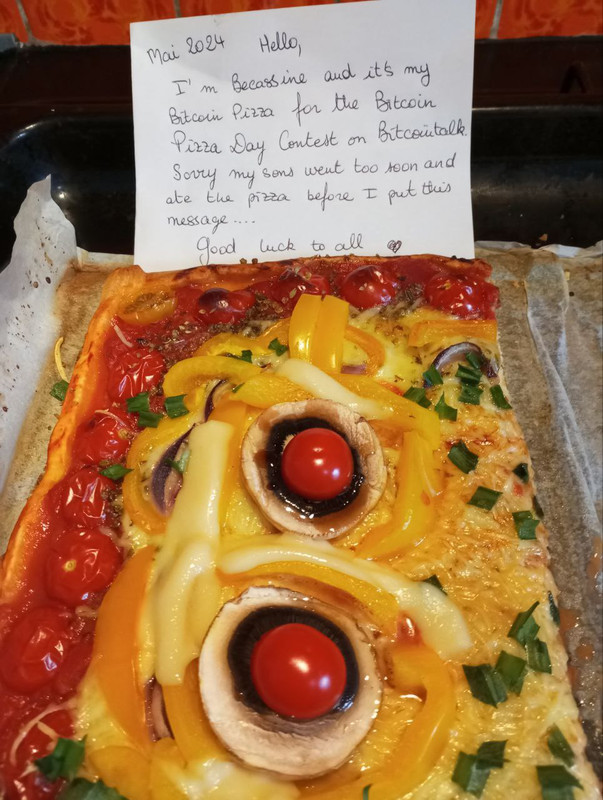 Mai 2024 Hello,
I'm Becassine and it's my
Bitcoin Pizza for the Bitcoin
Pizza Day Contest on Bitcointalk
Sorry my sons went too soon and
ate the pizza before I put this
message....
Good luck to all ♥